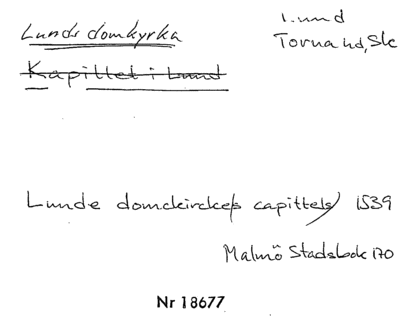 Lunds domkyrka
Lund
Torna hd, Sk
Kapittel i Lund
Lunde domckirckes capittels 1539
Malmö Stadsbok 170
Nr 18677